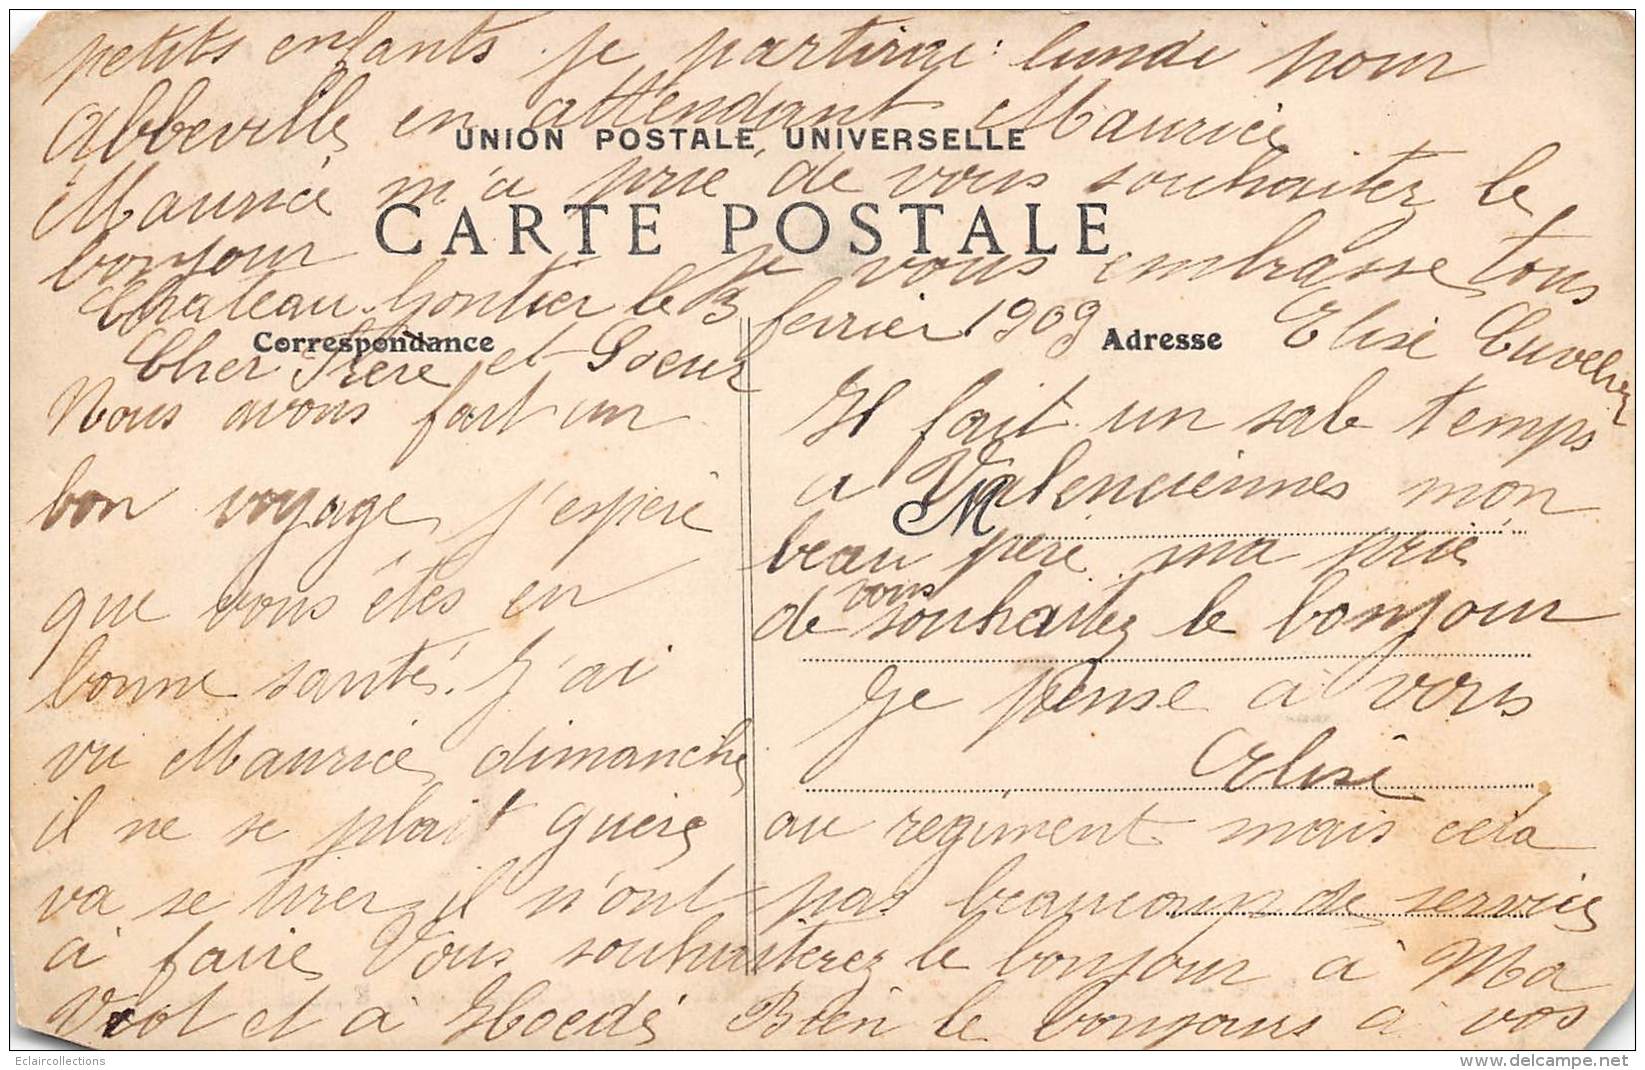 petits enfants. je partirai lundi pour
Abbeville en attendant Maurice
UNION POSTALE UNIVERSELLE
Maurice m'a prié de vous souhaitez le
CARTE POSTALE
bonjour je vous embrasse tous
Elise Cuvelier
Chateau-Gontier le 3 fevrier 1909
Correspondance
Adresse
Cher Frère et Soeur
Nous avons fait un
bon voyage j'espère
que vous êtes en
bonne santé. J'ai
vu Maurice dimanche
il ne se plait guère au regiment mais cela
va se tirer il n'ont pas beaucoup de service
à faire Vous souhaiterez le bonjour à Ma
et à Bien le bonjours a vos
Il fait un sale temps
a Valenciennes mon
M
beau père ma prié
de vous souhaitez le bonjour
Je pense à vous
Elise
Eclaircollections
www.delcampe.net